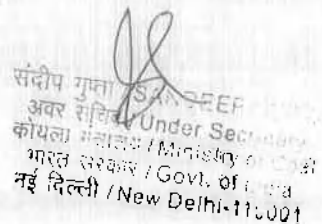 संदीप गुप्ता / SANDEEP
अवर सचिव / Under Secretary
कोयला मंत्रालय / Ministry of Coal
भारत सरकार / Govt. of India
नई दिल्ली / New Delhi-110001